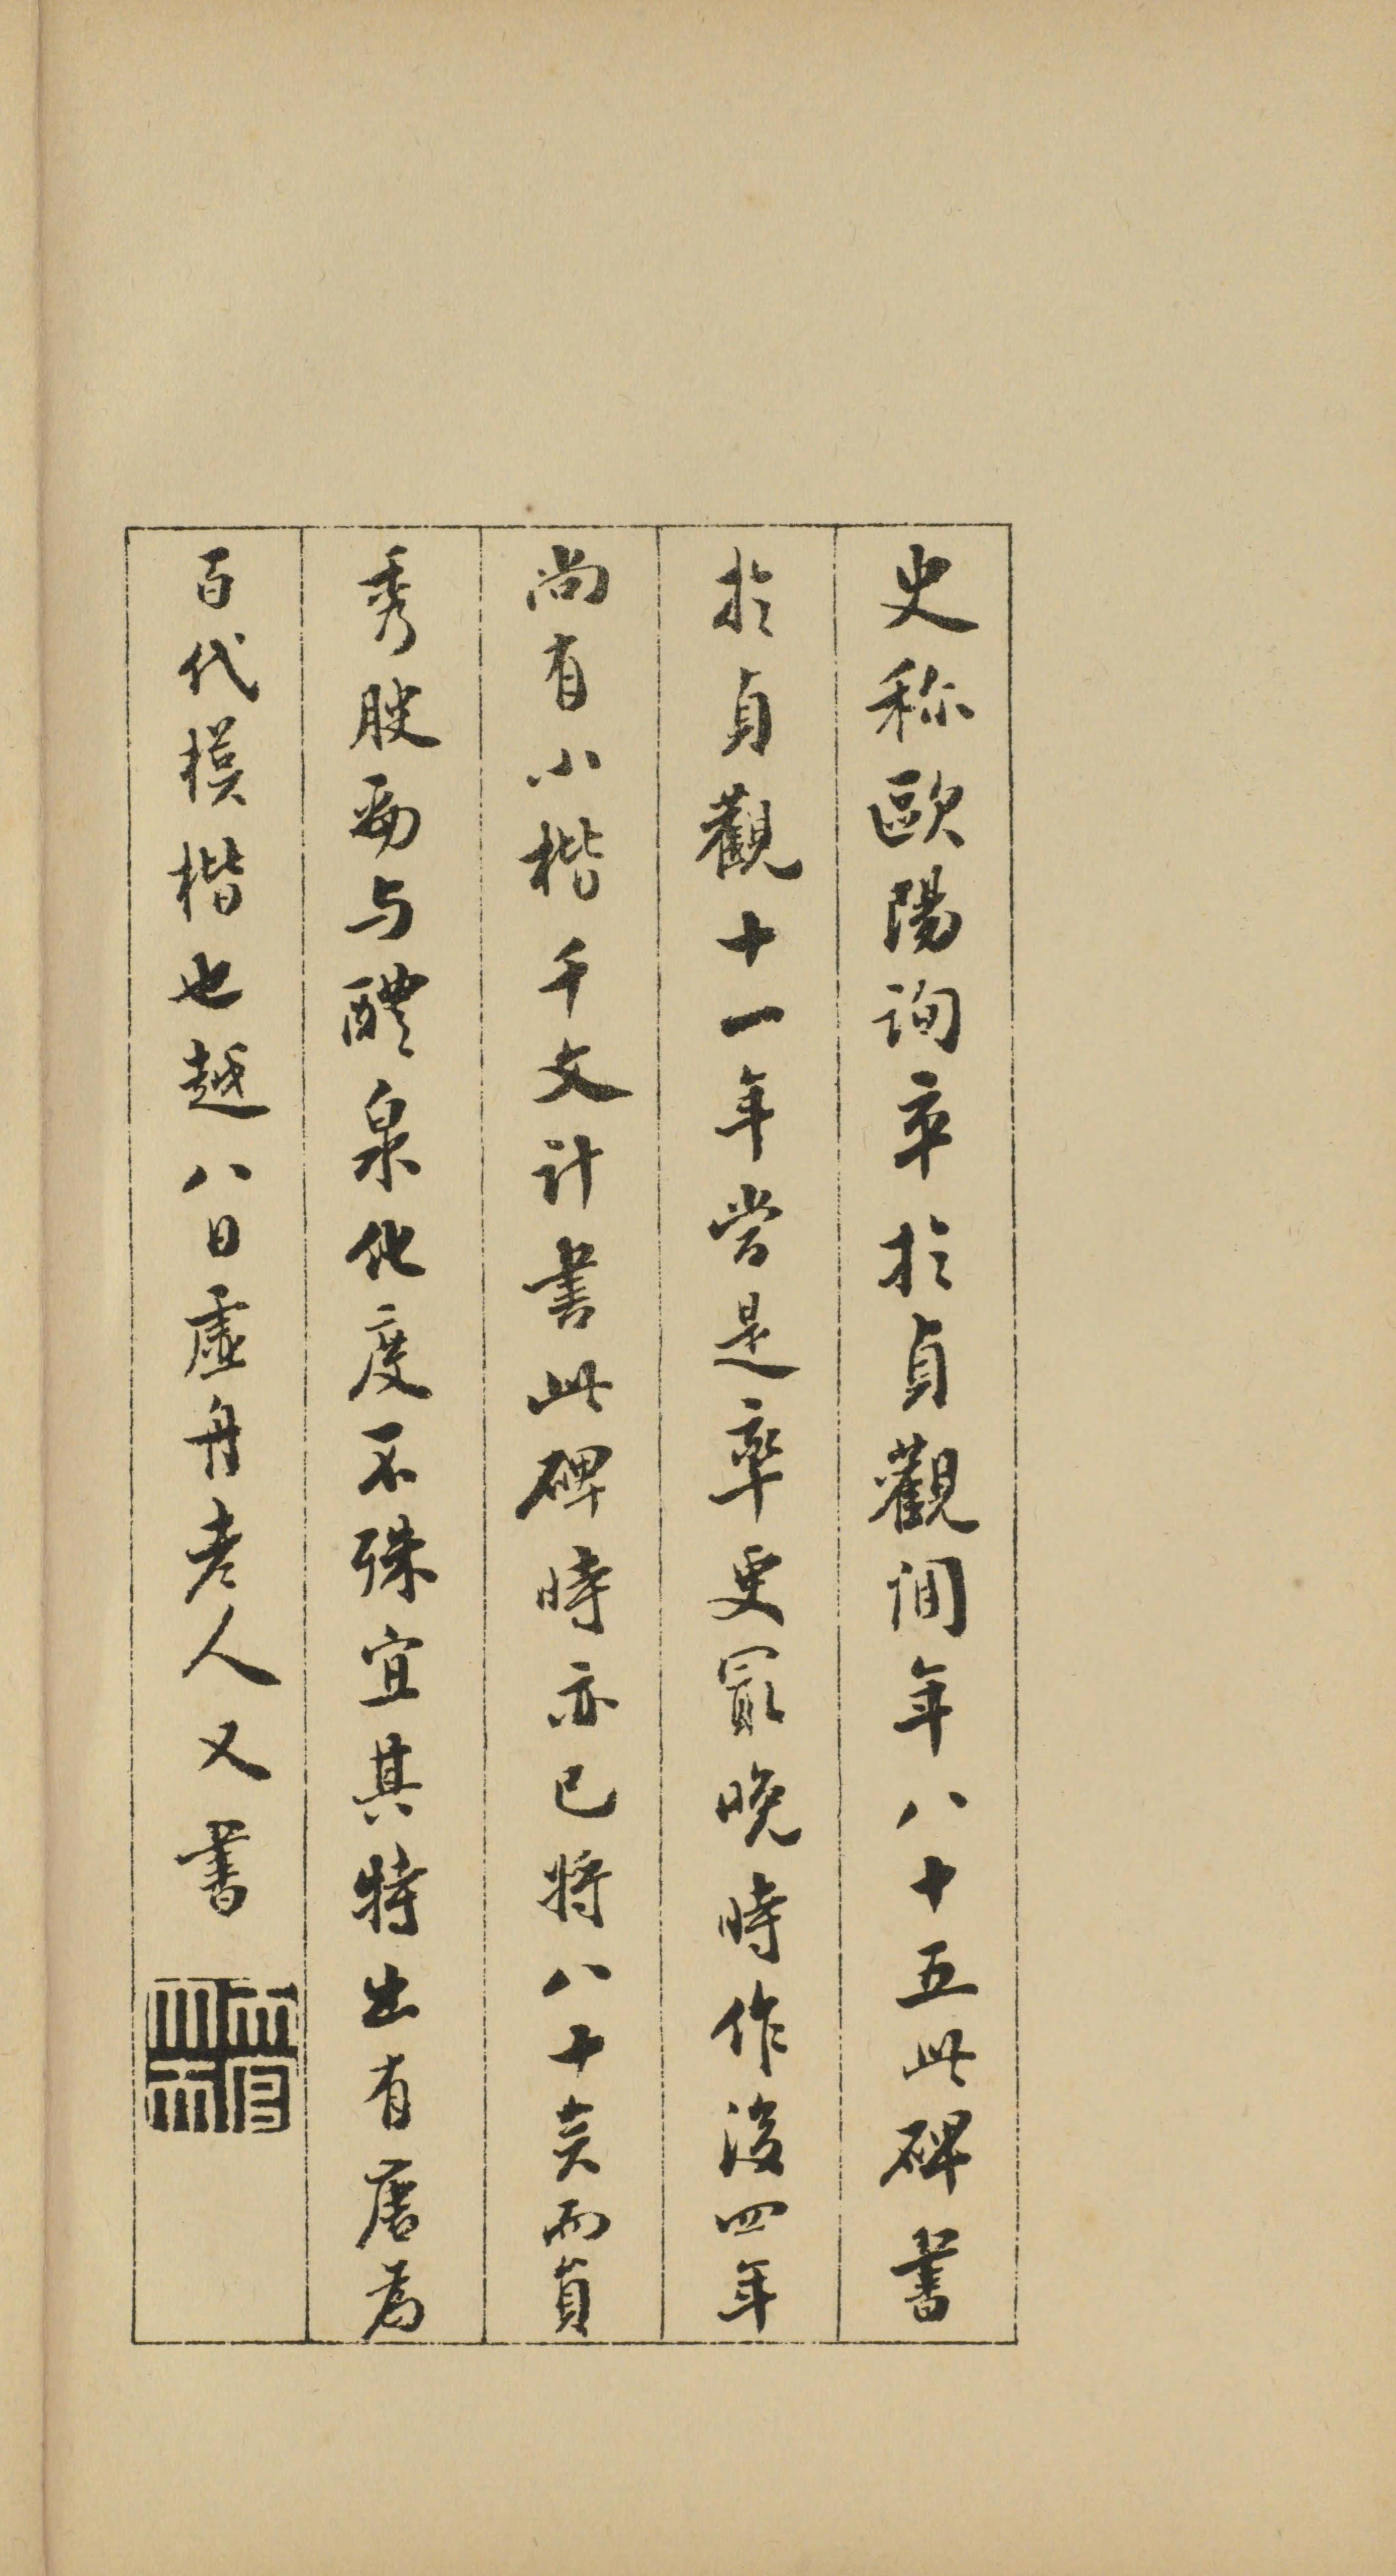 史称歐陽詢卒於貞觀間年八十五此碑書
於貞觀十一年當是率更冣晚時作後四年
尚有小楷千文計書此碑時亦已將八十矣而貞
秀腴勁与醴泉化度不殊宜其特出有唐為
百代模楷也越八日虛舟老人又書